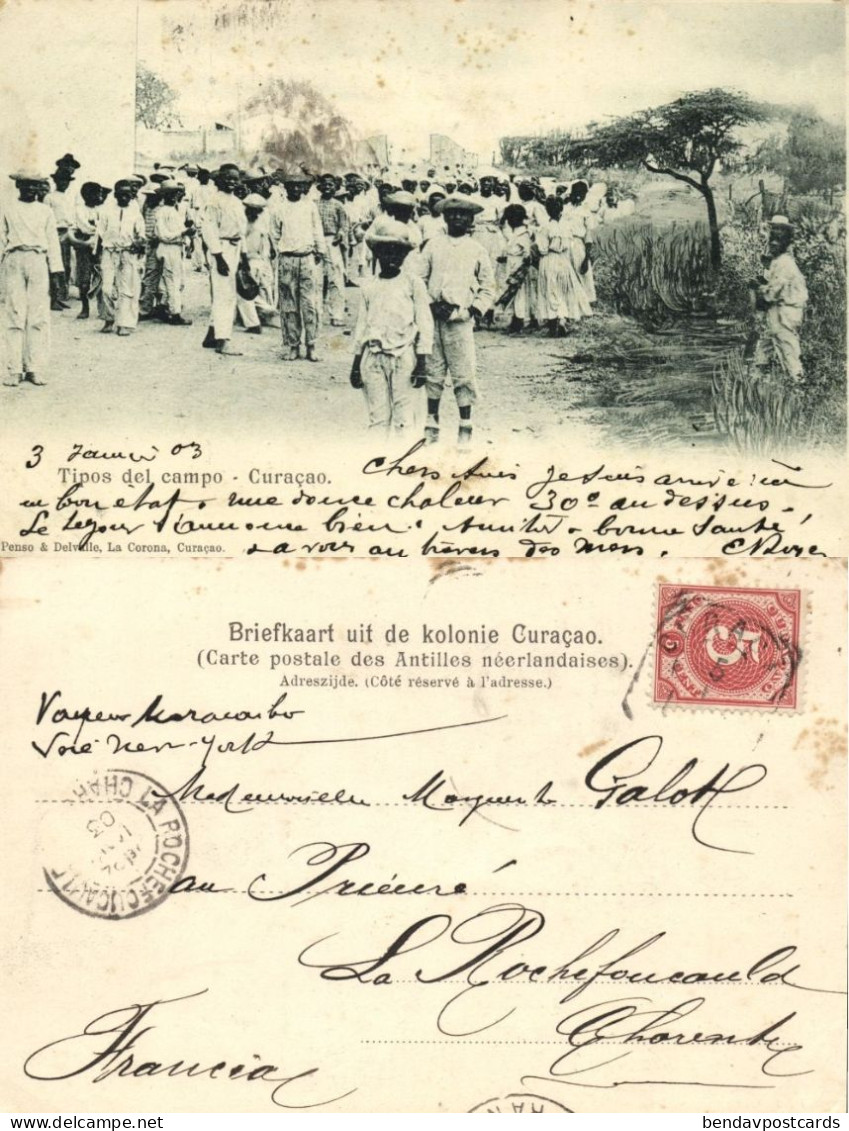 3 Janvier 03
Tipos del campo - Curaçao. Chers Amis je suis arrivé
en bon état. une douce chaleur 30° au dessus.
Le séjour s'annonce bien. Amitiés. bonne santé!
Penso & Delvalle, La Corona, Curaçao. à vous au travers des mers.
Briefkaart uit de kolonie Curaçao.
(Carte postale des Antilles néerlandaises).
Adreszijde. (Côté réservé à l'adresse.)
Vapeur Maracaibo
Voie New-York
Mademoiselle Marguerite Galok
au Prieuré
La Rochefoucauld
Charente
Francia
LA ROCHEFOUCAULD
03
5
bendavpostcards